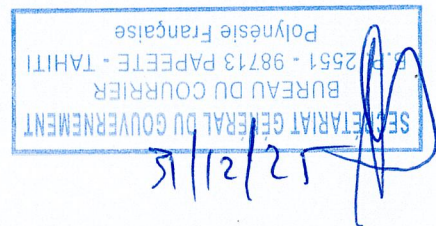 SECRÉTARIAT GÉNÉRAL DU GOUVERNEMENT
BUREAU DU COURRIER
B.P. 2551 - 98713 PAPEETE - TAHITI
Polynésie Française
31/12/25